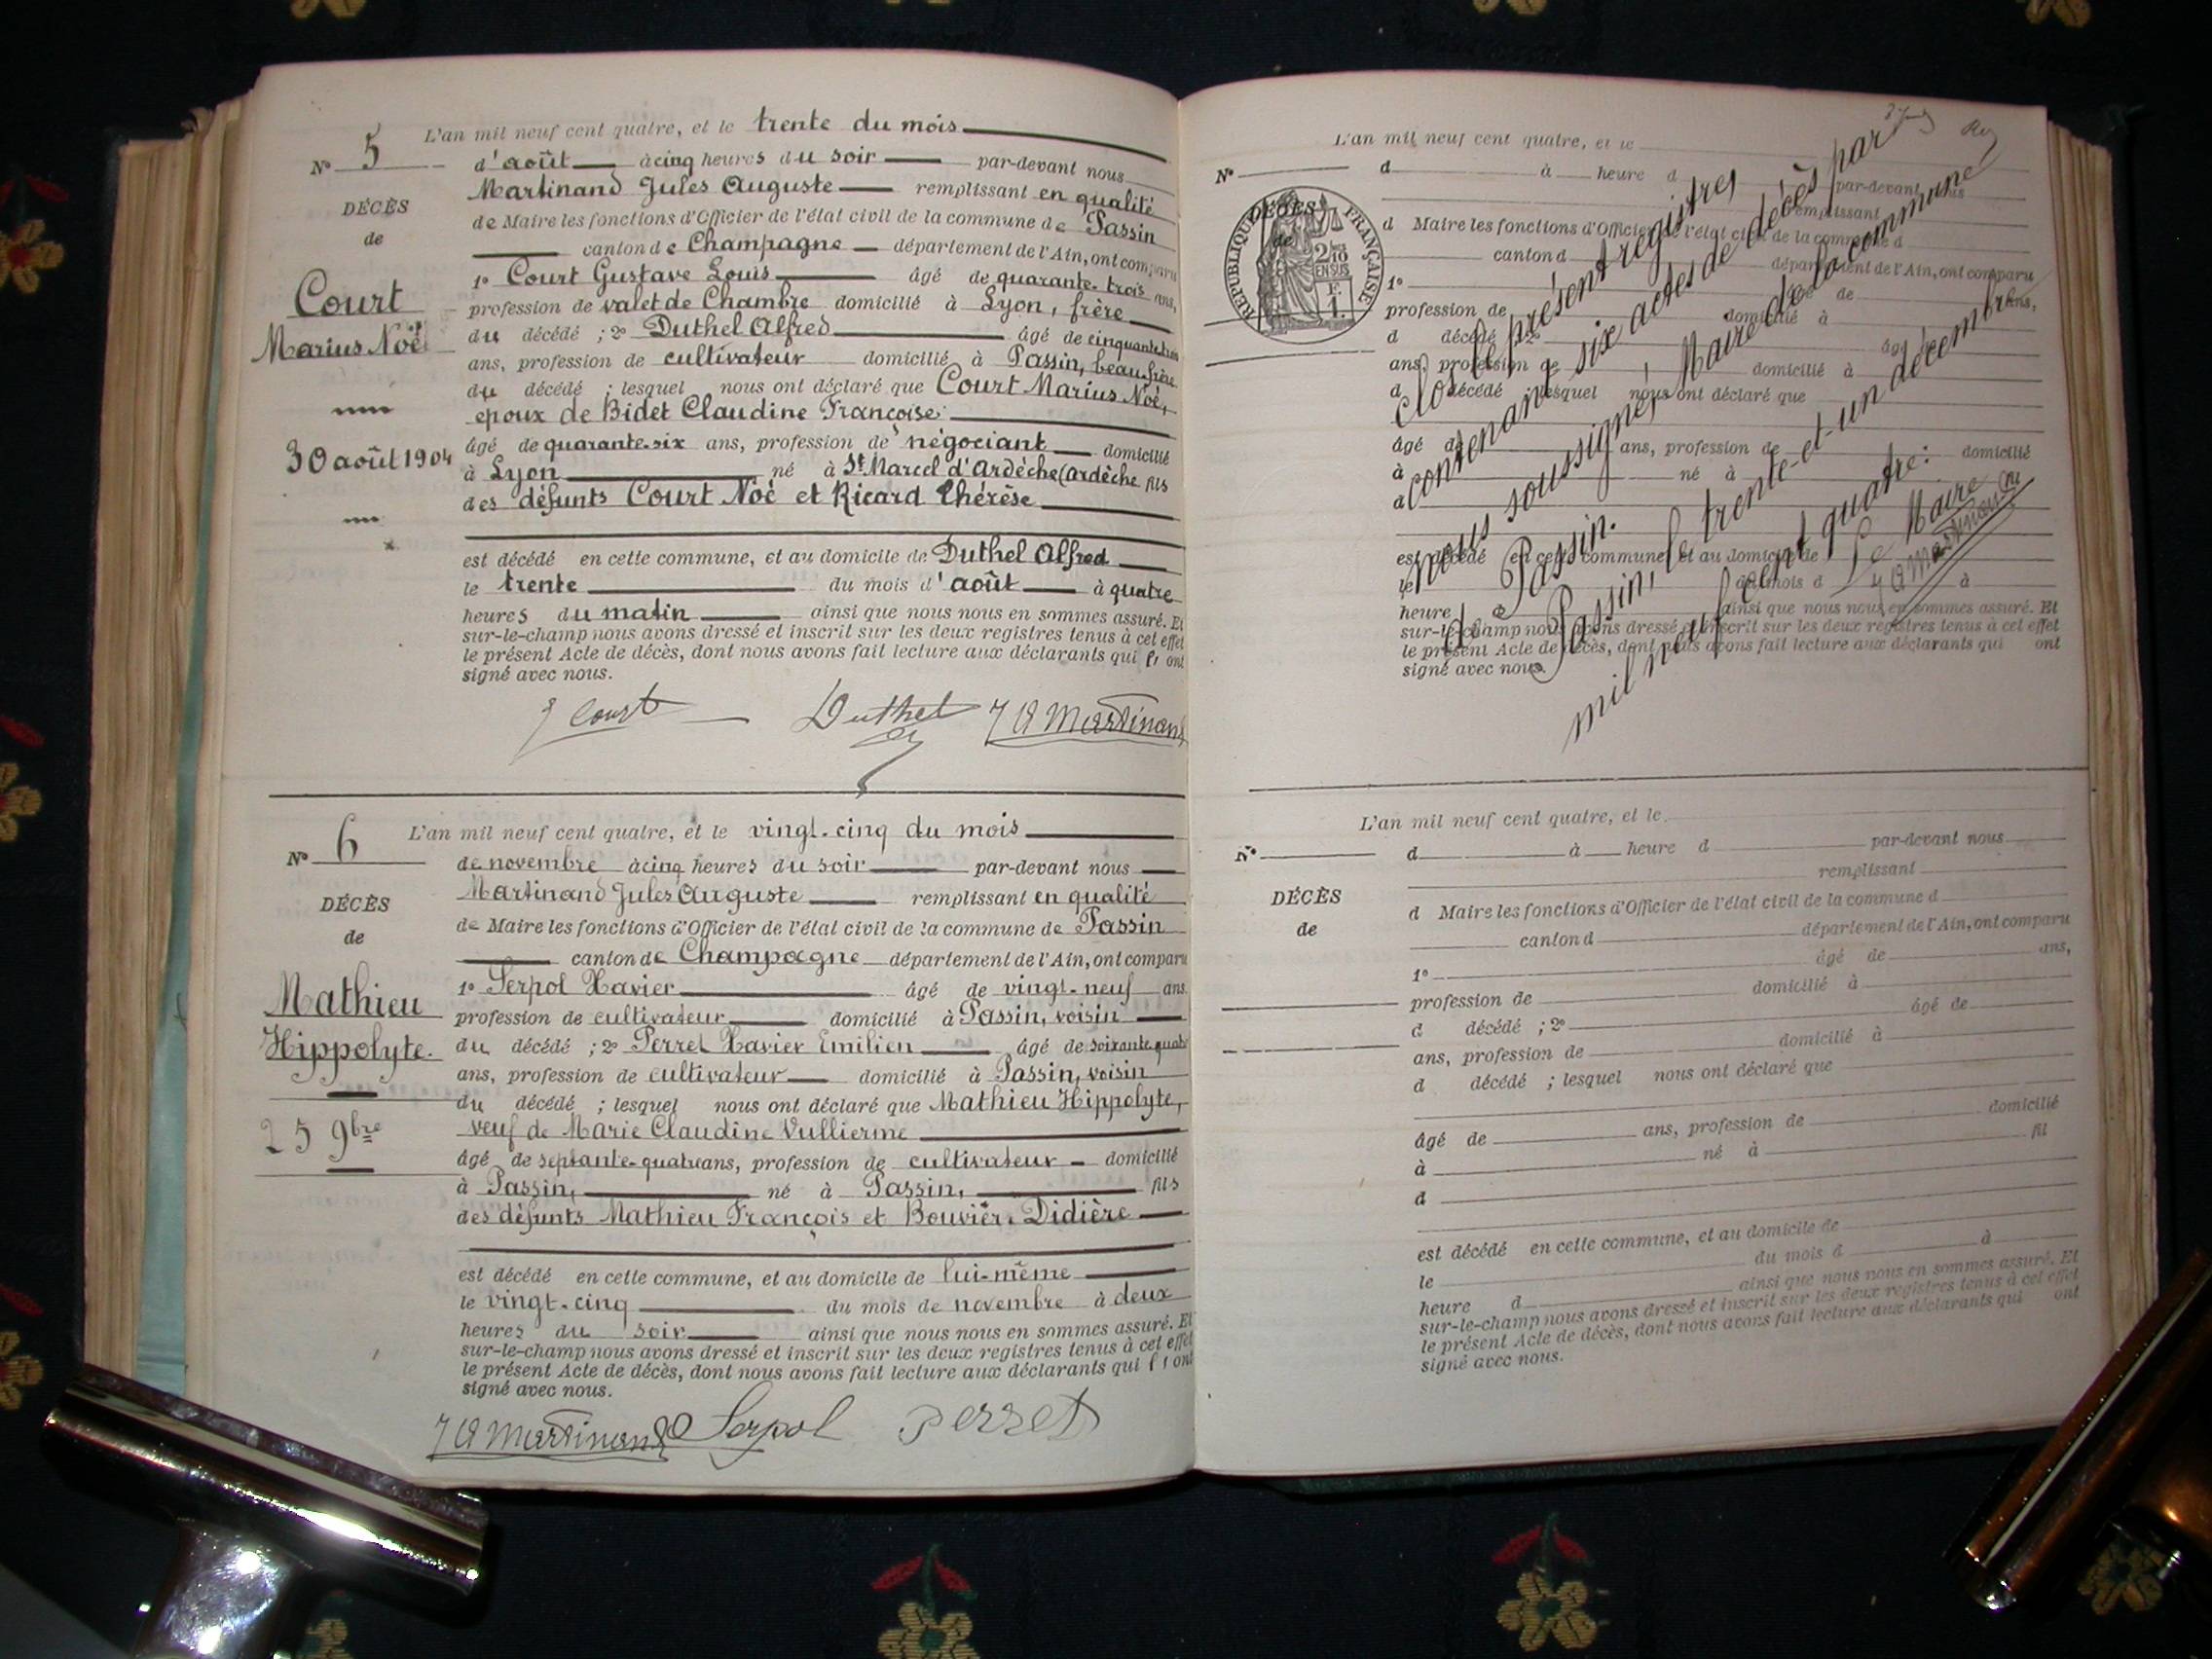 L'an mil neuf cent quatre, et le trente du mois
N° 5
d'août à cinq heures du soir par-devant nous
Martinand Jules Auguste remplissant en qualité
DÉCÈS
de Maire les fonctions d'Officier de l'état civil de la commune de Passin
de
canton de Champagne département de l'Ain, ont comparu
1° Court Gustave Louis âgé de quarante-trois ans,
Court
profession de valet de Chambre domicilié à Lyon, frère
Marius Noé
du décédé ; 2° Duthel Alfred âgé de cinquante-trois
ans, profession de cultivateur domicilié à Passin, beau-frère
du décédé ; lesquel nous ont déclaré que Court Marius Noé,
epoux de Bidet Claudine Françoise
30 août 1904
âgé de quarante-six ans, profession de négociant domicilié
à Lyon né à St Marcel d'Ardèche (Ardèche fils
des défunts Court Noé et Ricard Thérèse
est décédé en cette commune, et au domicile de Duthel Alfred
le trente du mois d'août à quatre
heures du matin ainsi que nous nous en sommes assuré. Et
sur-le-champ nous avons dressé et inscrit sur les deux registres tenus à cet effet
le présent Acte de décès, dont nous avons fait lecture aux déclarants qui l'ont
signé avec nous.
g Court Duthel J A Martinand
L'an mil neuf cent quatre, et le vingt-cinq du mois
N° 6
de novembre à cinq heures du soir par-devant nous
Martinand Jules Auguste remplissant en qualité
DÉCÈS
de Maire les fonctions d'Officier de l'état civil de la commune de Passin
de
canton de Champagne département de l'Ain, ont comparu
1° Serpol Xavier âgé de vingt-neuf ans
Mathieu
profession de cultivateur domicilié à Passin, voisin
Hippolyte.
du décédé ; 2° Perret Xavier Emilien âgé de soixante-quatre
ans, profession de cultivateur domicilié à Passin, voisin
du décédé ; lesquel nous ont déclaré que Mathieu Hippolyte,
25 9bre
veuf de Marie Claudine Vullierme
âgé de septante-quatre ans, profession de cultivateur domicilié
à Passin, né à Passin, fils
des défunts Mathieu François et Bouvier, Didière
est décédé en cette commune, et au domicile de lui-même
le vingt-cinq du mois de novembre à deux
heures du soir ainsi que nous nous en sommes assuré. Et
sur-le-champ nous avons dressé et inscrit sur les deux registres tenus à cet effet
le présent Acte de décès, dont nous avons fait lecture aux déclarants qui l'ont
signé avec nous.
J A Martinand Serpol Perret
L'an mil neuf cent quatre, et le
N° d à heure d par-devant nous
remplissant
DÉCÈS
d Maire les fonctions d'Officier de l'état civil de la commune d
de
canton d département de l'Ain, ont comparu
1° âgé de ans,
profession de domicilié à
d décédé ; 2° âgé de
ans, profession de domicilié à
d décédé ; lesquel nous ont déclaré que
âgé de ans, profession de domicilié
à né à
d
est décédé en cette commune, et au domicile de
le du mois d à
heure d ainsi que nous nous en sommes assuré. Et
sur-le-champ nous avons dressé et inscrit sur les deux registres tenus à cet effet
le présent Acte de décès, dont nous avons fait lecture aux déclarants qui ont
signé avec nous.
RÉPUBLIQUE FRANÇAISE
2/10
EN SUS
1 F.
Clos le présent registres
contenant six actes de décès par
nous soussigné, Maire de la commune
de Passin.
Passin, le trente-et-un décembre
mil neuf cent quatre:
Le Maire
J A Martinand
L'an mil neuf cent quatre, et le
N° d à heure d par-devant nous
remplissant
DÉCÈS
d Maire les fonctions d'Officier de l'état civil de la commune d
de
canton d département de l'Ain, ont comparu
1° âgé de ans,
profession de domicilié à
d décédé ; 2° âgé de
ans, profession de domicilié à
d décédé ; lesquel nous ont déclaré que
âgé de ans, profession de domicilié
à né à fil
d
est décédé en cette commune, et au domicile de
le du mois d à
heure d ainsi que nous nous en sommes assuré. Et
sur-le-champ nous avons dressé et inscrit sur les deux registres tenus à cet effet
le présent Acte de décès, dont nous avons fait lecture aux déclarants qui ont
signé avec nous.